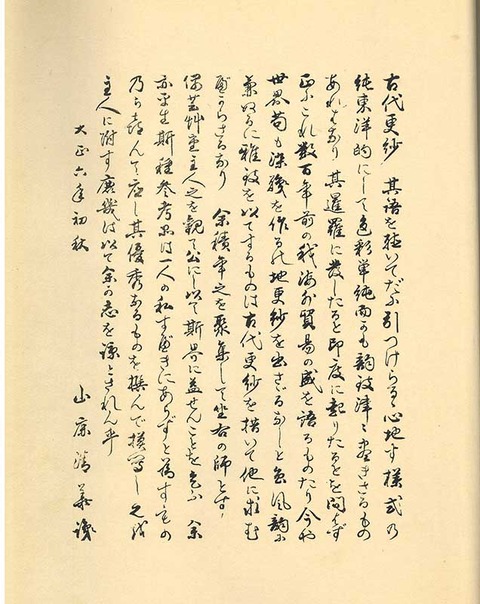 古代更紗 其語を聴いてだに引つけらるゝ心地す様式の
純東洋的にして色彩単純而かも韻致津々盡きさるもの
あればなり 其暹羅に発したると印度に起りたるとを問はず
正にこれ数百年前の我海外貿易の盛を語るものたり今や
世界苟も染織を作るの地更紗を出さゞるなしと雖風韻に
兼ぬるに雅致を以てするものは古代更紗を措いて他に求む
可からさるなり 余積年之を聚集して坐右の師とす
芸艸堂主人之を観て公にし以て斯界に益せんことを乞ふ 余
亦平生斯種参考品は一人の私す可きにあらずと為すもの
乃ち喜んで応し其優秀なるものを撰んで模写し之を
主人に附す庶幾は以て余の志を諒とされん乎
大正六年初秋
山鹿清華識